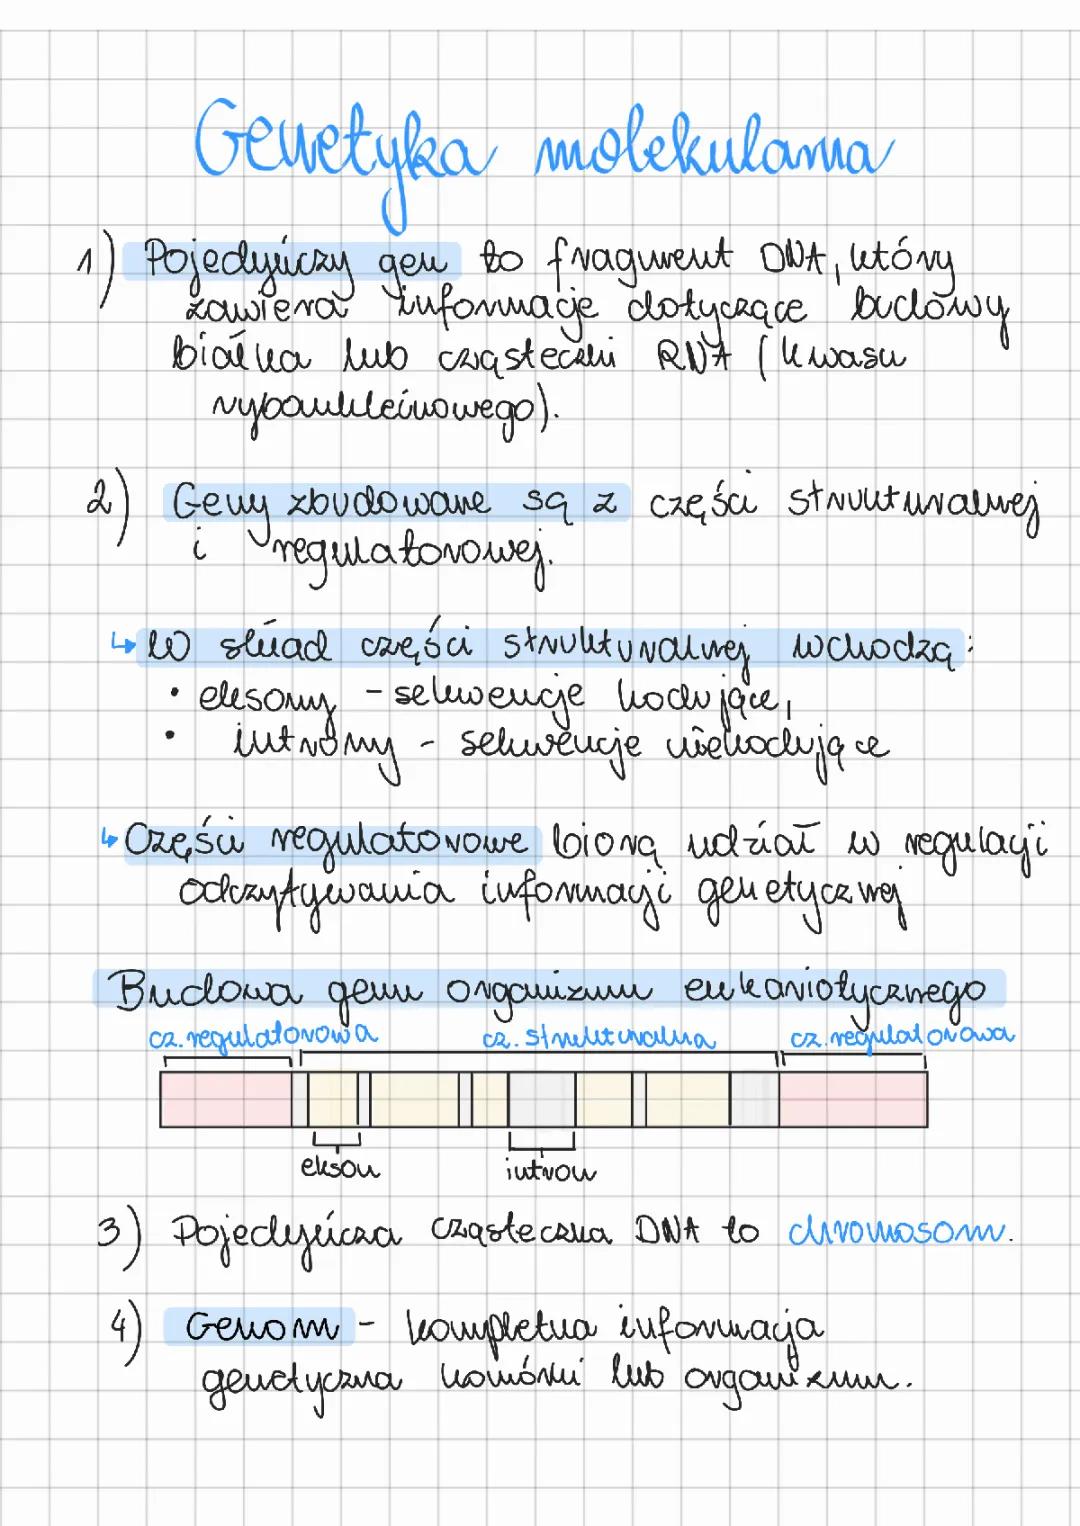 Genetyka molekularna
1) Pojedyńczy gen to fragment DNA, który
zawiera informacje dotyczące budowy
białka lub cząsteczki RNA (kwasu
rybonukleinowego).
2) Geny zbudowane są z części strukturalnej
i regulatorowej.
↳ W skład części strukturalnej wchodzą:
• eksony - sekwencje kodujące,
• introny - sekwencje niekodujące
↳ Części regulatorowe biorą udział w regulacji
odczytywania informacji genetycznej
Budowa genu organizmu eukariotycznego
cz. regulatorowa cz. strukturalna cz. regulatorowa
ekson intron
3) Pojedyńcza cząsteczka DNA to chromosom.
4) Genom - kompletna informacja
genetyczna komórki lub organizmu.